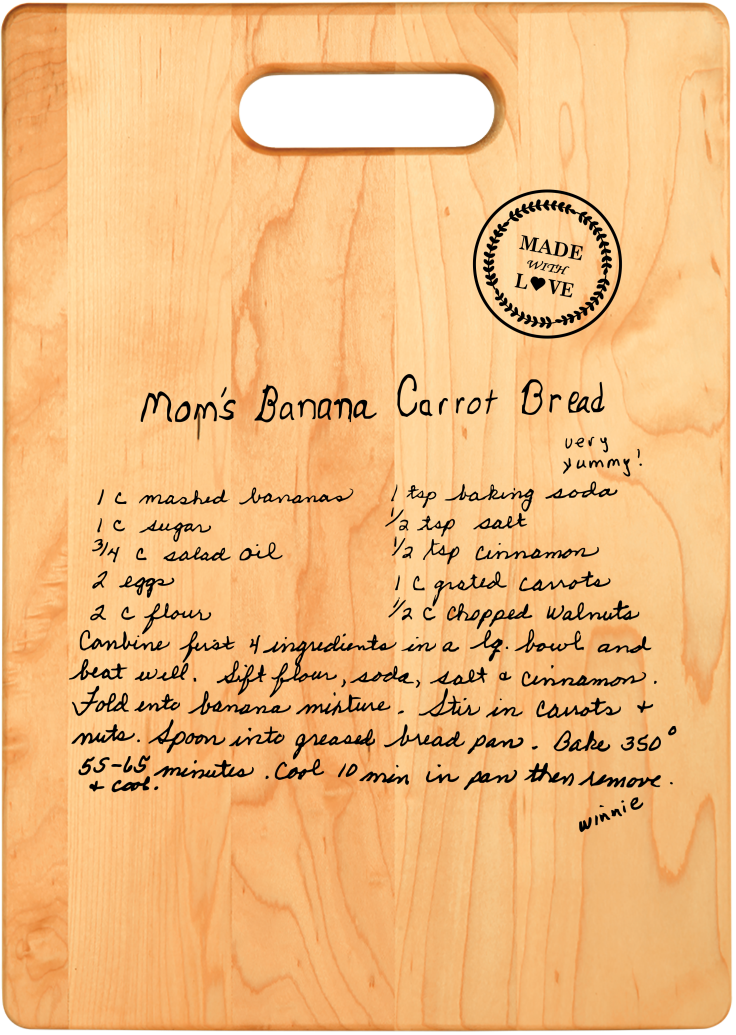 MADE
WITH
L♥VE
Mom's Banana Carrot Bread
very
yummy!
1 c mashed bananas
1 c sugar
3/4 c salad oil
2 eggs
2 c flour
1 tsp baking soda
1/2 tsp salt
1/2 tsp cinnamon
1 c grated carrots
1/2 c chopped walnuts
Conbine first 4 ingredients in a lg. bowl and
beat well. Sift flour, soda, salt & cinnamon.
Fold into banana mixture. Stir in carrots +
nuts. Spoon into greased bread pan. Bake 350°
55-65 minutes. Cool 10 min in pan then remove.
+ cool.
winnie